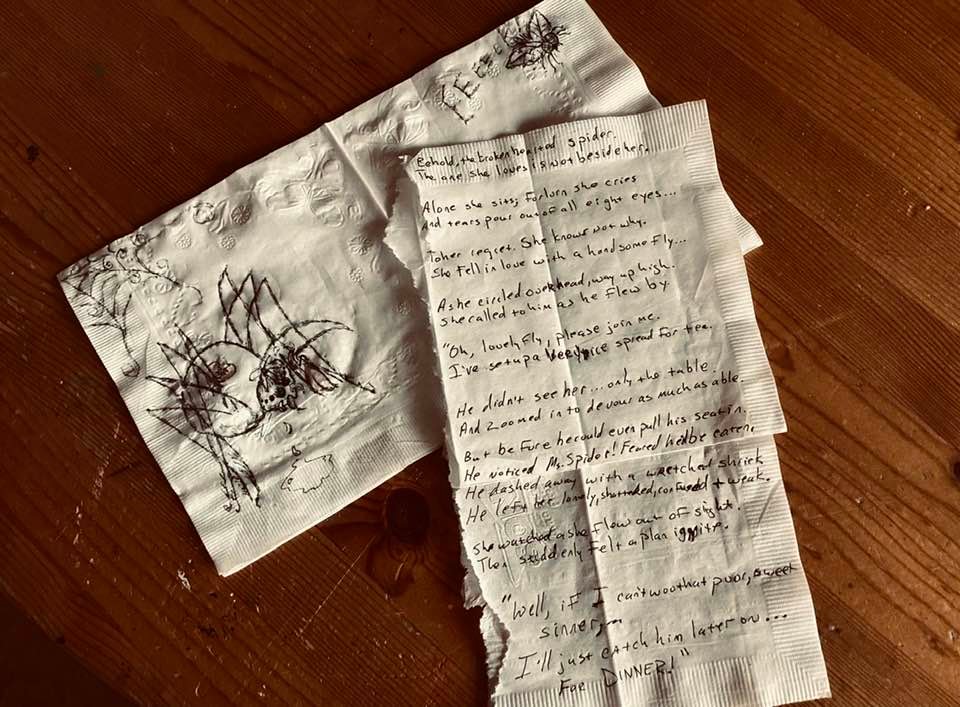 EEEEEK
Behold, the broken hearted spider.
The one she loves is not beside her.
Alone she sits; forlorn she cries
And tears pour out of all eight eyes...
To her regret. She knows not why.
She fell in love with a handsome fly...
As he circled overhead, way up high.
She called to him as he flew by
"Oh, lovely fly, please join me.
I've set up a very nice spread for tea.
He didn't see her... only the table.
And zoomed in to devour as much as able.
But be fure he could even pull his seat in.
He noticed Ms. Spider! Feared he'd be eaten.
He dashed away with a wretched shriek
He left her lonely, shattered, confused & weak.
She watched as he flew out of sight.
Then suddenly felt a plan ignite.
"Well, if I can't woo that poor, sweet
sinner,
I'll just catch him later on...
For DINNER!"